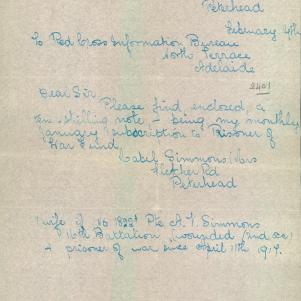 Peterhead
February 4th
To Red Cross Information Bureau
North Terrace
Adelaide
2401
Dear Sir
Please find enclosed, a
ten-shilling note - being my monthly
January subscription to Prisoner of
War Fund.
Mabel Simmons Mrs
Fletcher Rd
Peterhead
wife of No 1822 Pte A. J. Simmons
16th Battalion wounded
prisoner of war since April 11th 1917.